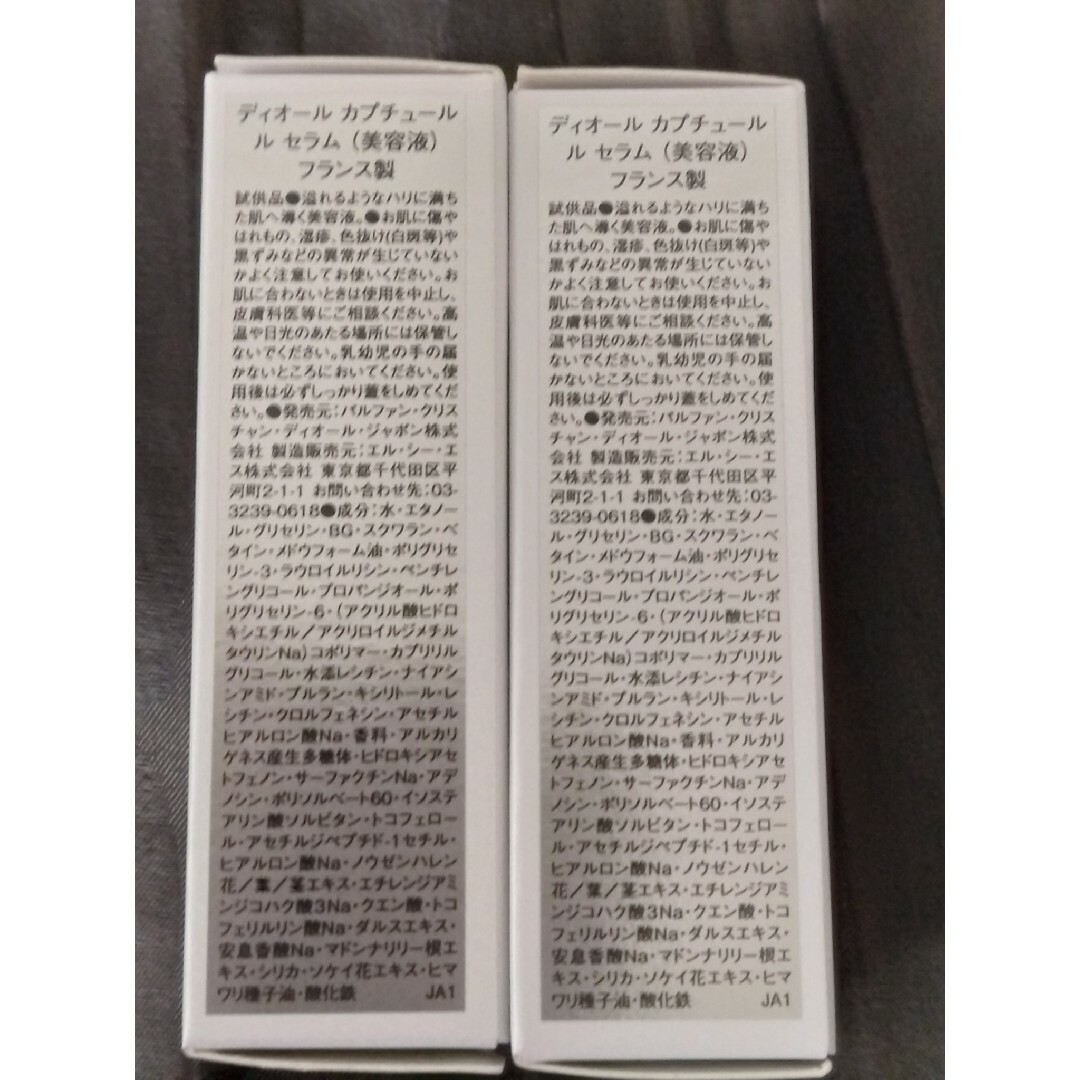 ディオール カプチュール
ル セラム（美容液）
フランス製
試供品●溢れるようなハリに満ち
た肌へ導く美容液。●お肌に傷や
はれもの、湿疹、色抜け(白斑等)や
黒ずみなどの異常が生じていない
かよく注意してお使いください。お
肌に合わないときは使用を中止し、
皮膚科医等にご相談ください。高
温や日光のあたる場所には保管し
ないでください。乳幼児の手の届
かないところにおいてください。使
用後は必ずしっかり蓋をしめてくだ
さい。●発売元：パルファン・クリス
チャン・ディオール・ジャポン株式
会社 製造販売元：エル・シー・エ
ス株式会社 東京都千代田区平
河町2-1-1 お問い合わせ先：03-
3239-0618●成分：水・エタノー
ル・グリセリン・BG・スクワラン・ベ
タイン・メドウフォーム油・ポリグリセ
リン-3・ラウロイルリシン・ペンチレ
ングリコール・プロパンジオール・ポ
リグリセリン-6・（アクリル酸ヒドロ
キシエチル／アクリロイルジメチル
タウリンNa）コポリマー・カプリリル
グリコール・水添レシチン・ナイアシ
ンアミド・プルラン・キシリトール・レ
シチン・クロルフェネシン・アセチル
ヒアルロン酸Na・香料・アルカリ
ゲネス産生多糖体・ヒドロキシアセ
トフェノン・サーファクチンNa・アデ
ノシン・ポリソルベート60・イソステ
アリン酸ソルビタン・トコフェロー
ル・アセチルジペプチド-1セチル・
ヒアルロン酸Na・ノウゼンハレン
花／葉／茎エキス・エチレンジアミ
ンジコハク酸3Na・クエン酸・トコ
フェリルリン酸Na・ダルスエキス・
安息香酸Na・マドンナリリー根エ
キス・シリカ・ソケイ花エキス・ヒマ
ワリ種子油・酸化鉄 JA1
ディオール カプチュール
ル セラム（美容液）
フランス製
試供品●溢れるようなハリに満ち
た肌へ導く美容液。●お肌に傷や
はれもの、湿疹、色抜け(白斑等)や
黒ずみなどの異常が生じていない
かよく注意してお使いください。お
肌に合わないときは使用を中止し、
皮膚科医等にご相談ください。高
温や日光のあたる場所には保管し
ないでください。乳幼児の手の届
かないところにおいてください。使
用後は必ずしっかり蓋をしめてくだ
さい。●発売元：パルファン・クリス
チャン・ディオール・ジャポン株式
会社 製造販売元：エル・シー・エ
ス株式会社 東京都千代田区平
河町2-1-1 お問い合わせ先：03-
3239-0618●成分：水・エタノー
ル・グリセリン・BG・スクワラン・ベ
タイン・メドウフォーム油・ポリグリセ
リン-3・ラウロイルリシン・ペンチレ
ングリコール・プロパンジオール・ポ
リグリセリン-6・（アクリル酸ヒドロ
キシエチル／アクリロイルジメチル
タウリンNa）コポリマー・カプリリル
グリコール・水添レシチン・ナイアシ
ンアミド・プルラン・キシリトール・レ
シチン・クロルフェネシン・アセチル
ヒアルロン酸Na・香料・アルカリ
ゲネス産生多糖体・ヒドロキシアセ
トフェノン・サーファクチンNa・アデ
ノシン・ポリソルベート60・イソステ
アリン酸ソルビタン・トコフェロー
ル・アセチルジペプチド-1セチル・
ヒアルロン酸Na・ノウゼンハレン
花／葉／茎エキス・エチレンジアミ
ンジコハク酸3Na・クエン酸・トコ
フェリルリン酸Na・ダルスエキス・
安息香酸Na・マドンナリリー根エ
キス・シリカ・ソケイ花エキス・ヒマ
ワリ種子油・酸化鉄 JA1